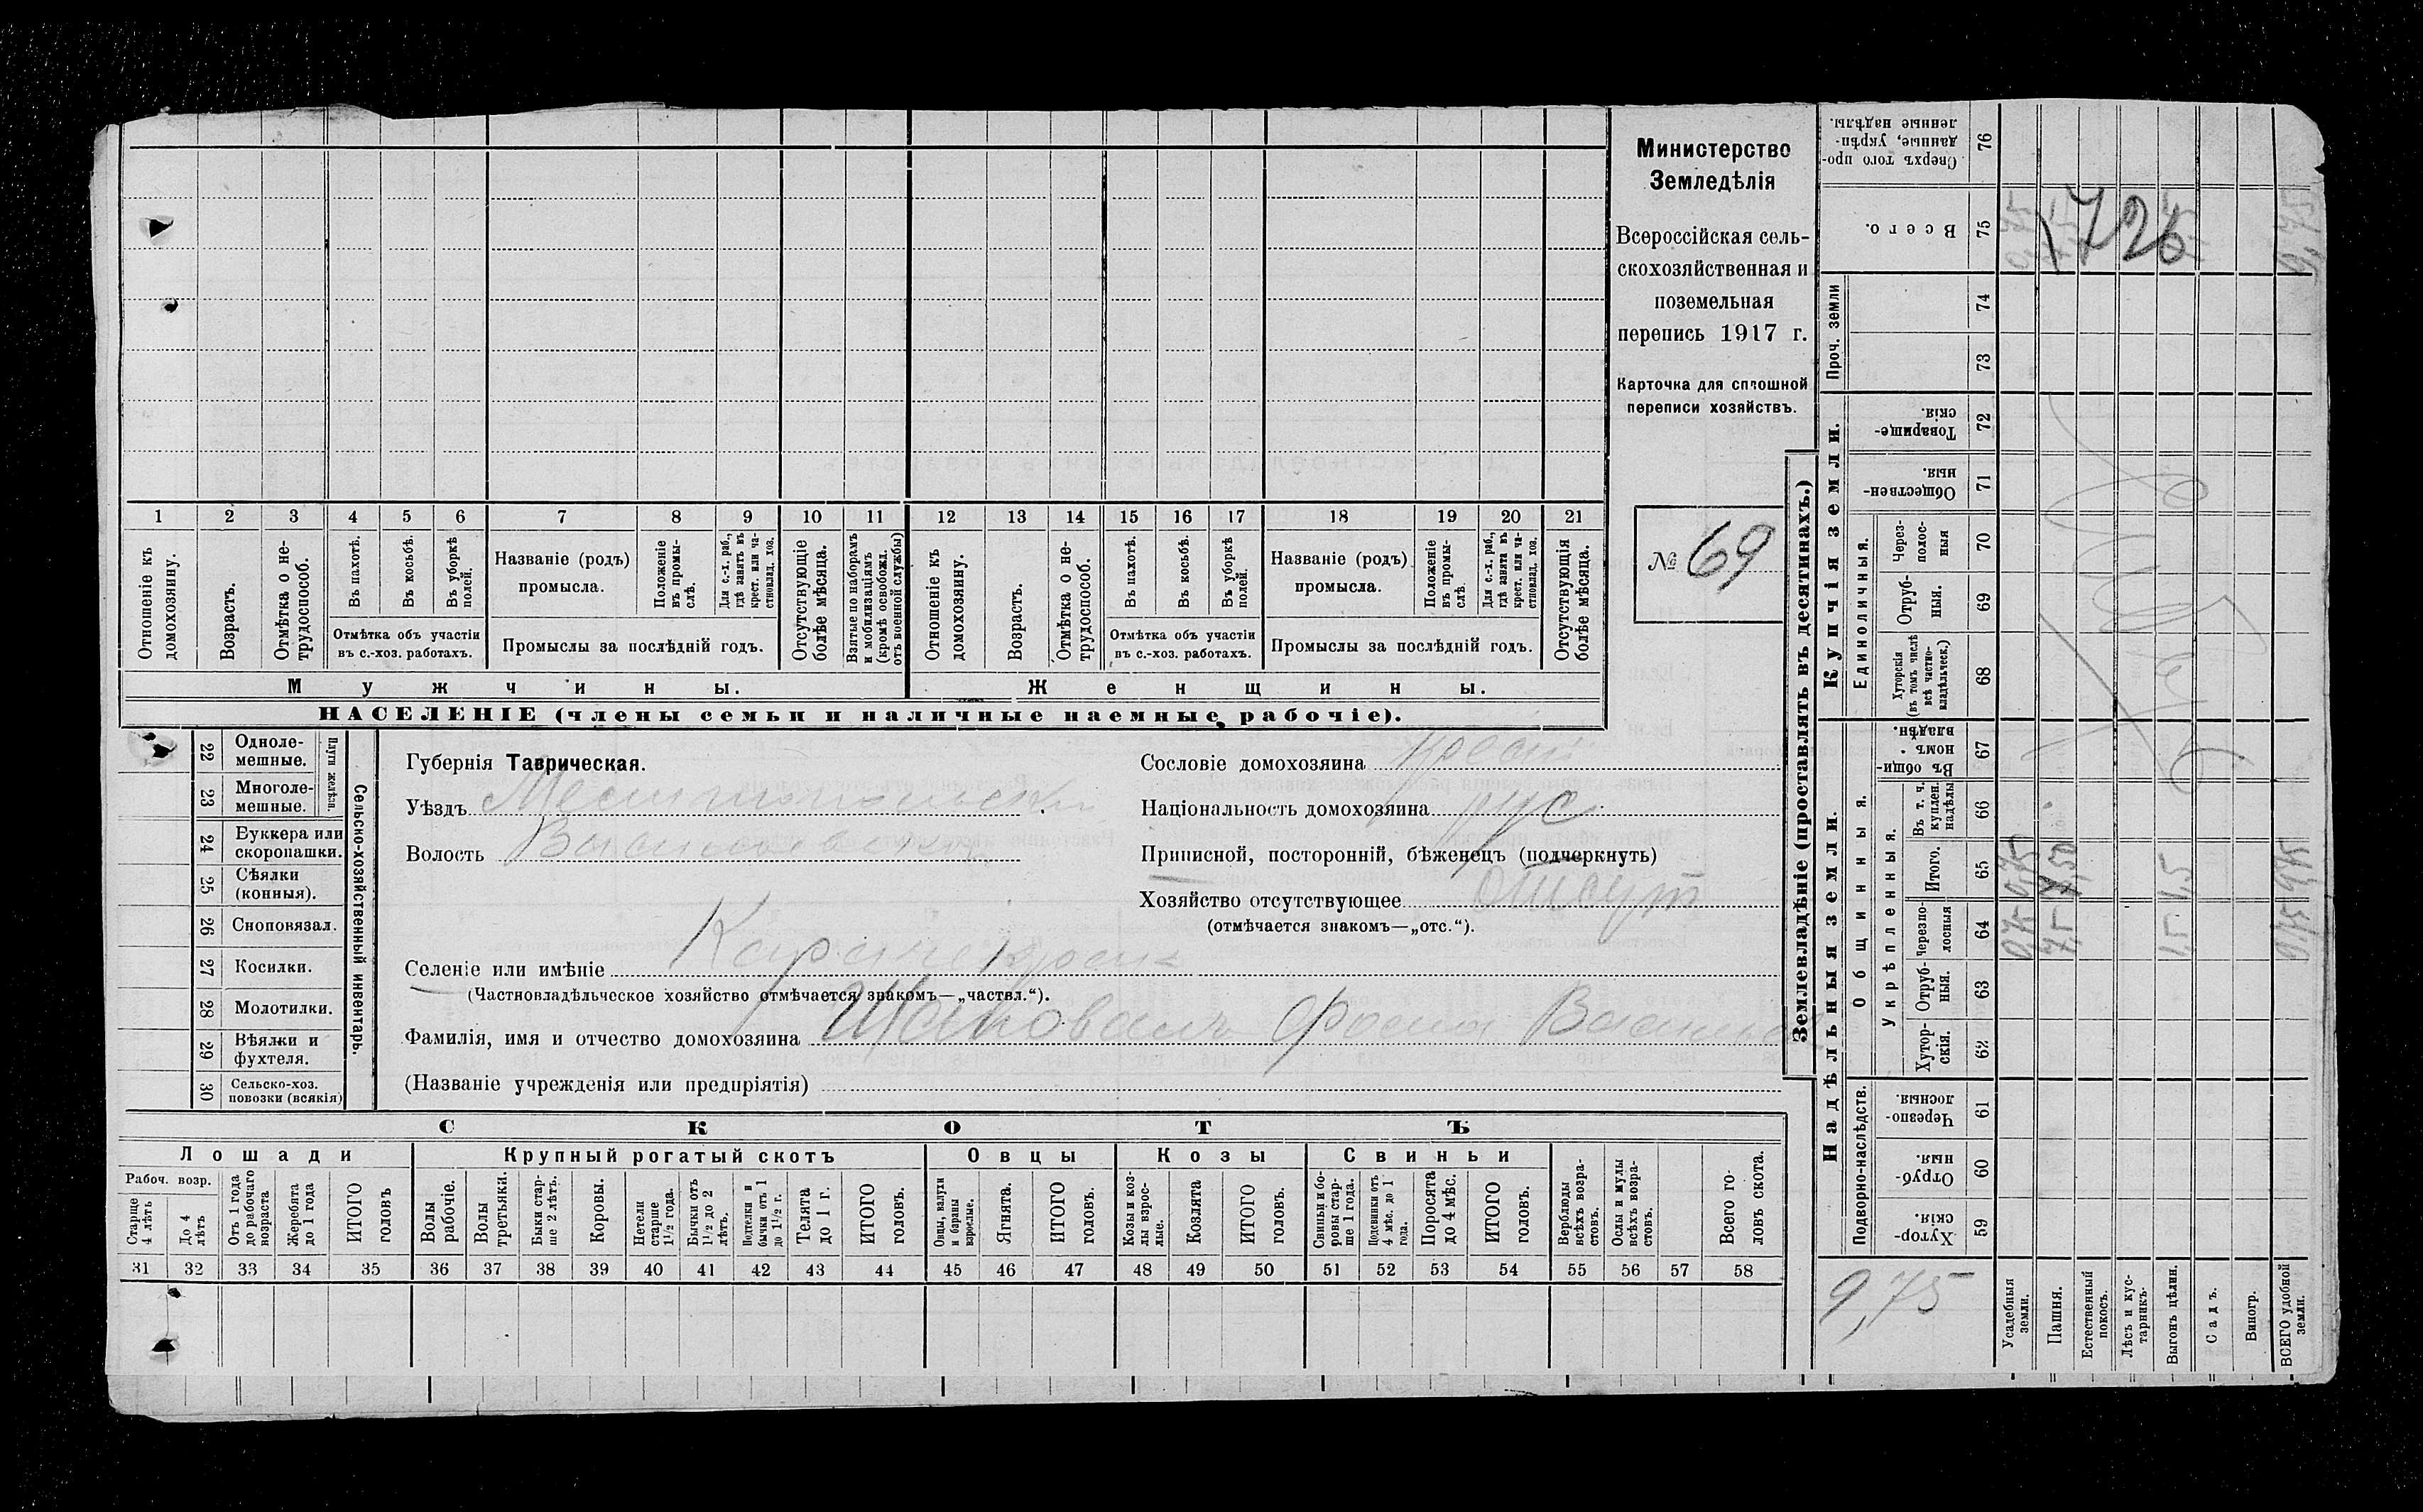 Министерство
Земледѣлія
Всероссійская сель-
скохозяйственная и
поземельная
перепись 1917 г.
Карточка для сплошной
переписи хозяйствъ.
№ 69
1 2 3 4 5 6 7 8 9 10 11 12 13 14 15 16 17 18 19 20 21
Отношеніе къ домохозяину.
Возрастъ.
Отмѣтка о не-трудоспособ.
Въ пахотѣ.
Въ косьбѣ.
Въ уборкѣ полей.
Отмѣтка объ участіи
въ с.-хоз. работахъ.
Названіе (родъ)
промысла.
Положеніе въ промы-слѣ.
Для с.-х. раб., гдѣ занятъ въ крест. или ча-стновлад. хоз.
Промыслы за послѣдній годъ.
Отсутствующіе болѣе мѣсяца.
Взятые по наборамъ и мобилизаціямъ (кромѣ освобожд. отъ военной службы)
Отношеніе къ домохозяину.
Возрастъ.
Отмѣтка о не-трудоспособ.
Въ пахотѣ.
Въ косьбѣ.
Въ уборкѣ полей.
Отмѣтка объ участіи
въ с.-хоз. работахъ.
Названіе (родъ)
промысла.
Положеніе въ промы-слѣ
Для с.-х. раб., гдѣ занята въ крест. или ча-стновлад. хоз.
Промыслы за послѣдній годъ.
Отсутствующія болѣе мѣсяца.
Мужчины.
Женщины.
НАСЕЛЕНІЕ (члены семьи и наличные наемные рабочіе).
22 Одноле-мешные.
23 Многоле-мешные.
Плуги желѣзн.
24 Буккера или скоропашки.
25 Сѣялки (конныя).
26 Сноповязал.
27 Косилки.
28 Молотилки.
29 Вѣялки и фухтеля.
30 Сельско-хоз. повозки (всякія)
Сельско-хозяйственный инвентарь.
Губернія Таврическая.
Уѣздъ Мелитопольскій
Волость Васильевская
Селеніе или имѣніе
(Частновладѣльческое хозяйство отмѣчается знакомъ—„частвл.“).
Фамилія, имя и отчество домохозяина
(Названіе учрежденія или предпріятія)
Сословіе домохозяина крест
Національность домохозяина рус
Приписной, посторонній, бѣженецъ (подчеркнуть)
Хозяйство отсутствующее отсут
(отмѣчается знакомъ—„отс.“).
СКОТЪ
Лошади
Крупный рогатый скотъ
Овцы
Козы
Свиньи
Рабоч. возр.
Старше 4 лѣтъ
До 4 лѣтъ
Отъ 1 года до рабочаго возраста
Жеребята до 1 года
ИТОГО головъ
Волы рабочіе.
Волы третьяки.
Быки стар-ше 2 лѣтъ.
Коровы.
Нетели старше 1½ года.
Бычки отъ 1½ до 2 лѣтъ.
Подтелки и бычки отъ 1 до 1½ г.
Телята до 1 г.
ИТОГО головъ.
Овцы, валухи и бараны взрослые.
Ягнята.
ИТОГО головъ.
Козы и коз-лы взрос-лые.
Козлята
ИТОГО головъ.
Свиньи и бо-ровы стар-ше 1 года.
Подсвинки отъ 4 мѣс. до 1 года.
Поросята до 4 мѣс.
ИТОГО головъ.
Верблюды всѣхъ возра-стовъ.
Ослы и мулы всѣхъ возра-стовъ.
Всего го-ловъ скота.
31 32 33 34 35 36 37 38 39 40 41 42 43 44 45 46 47 48 49 50 51 52 53 54 55 56 57 58
Землевладѣніе (проставлять въ десятинахъ.)
Надѣльныя земли.
Купчія земли.
Проч. земли
Подворно-наслѣдств.
Общинныя.
Укрѣпленныя.
Единоличныя.
Сверхъ того про-данные, укрѣп-ленные надѣлы. 76
Всего. 75
74
73
Товарище-скія. 72
Обществен-ныя. 71
Через-полос-ныя 70
Отруб-ныя. 69
Хуторскія (въ томъ числѣ всѣ частно-владѣльческ.) 68
Въ общи-номъ владѣн. 67
Въ т. ч. куплен. надѣлы 66
Итого. 65
Черезпо-лосныя 64
Отруб-ныя. 63
Хутор-скія. 62
Черезпо-лосныя. 61
Отруб-ныя. 60
Хутор-скія. 59
9,75
Усадебныя земли.
Пашня.
Естественный покосъ.
Лѣсъ и кус-тарникъ.
Выгонъ цѣлин.
Садъ.
Виногр.
ВСЕГО удобной земли.
726
0,75
7,5
1,5
9,75